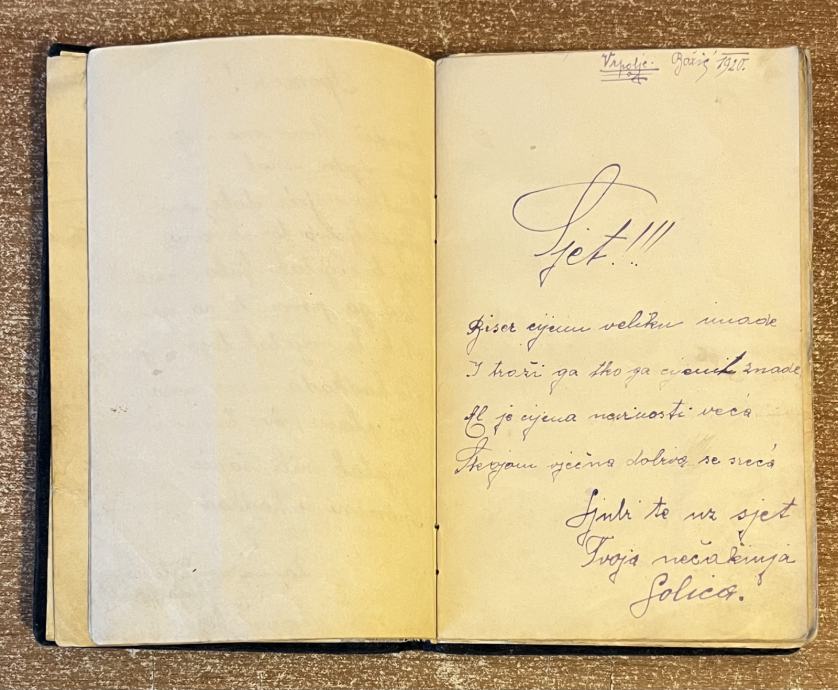 Vrpolje. Božić 1920.
Sjet!!!
Biser cijenu veliku imade
I traži ga tko ga cijenit znade
Al je cijena nevinosti veća
Šknjom vječna dobiva se sreća
Ljubi te uz sjet
Tvoja nećakinja
Jolica.